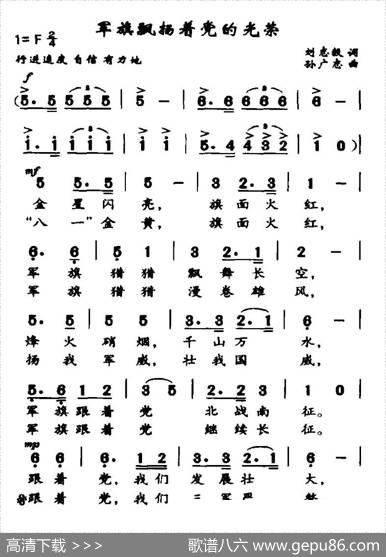 军旗飘扬着党的光荣
1=F 2/4
刘志毅 词
行进速度 自信 有力地
孙广志 曲
f
(5. 5 5 5 5 | 5 — | 6. 6 6 6 6 | 6 — |
i. i i i i | i i | 5. 4 4 3 2 | 1 0 ) |
mf
5 5. 5 | 5 — | 3 2. 3 | 1 — |
金 星 闪 亮, 旗 面 火 红,
“八 一” 金 黄, 旗 面 火 红,
6. 6 | 5 1 | 3 2. 1 | 2 — |
军 旗 猎 猎 飘 舞 长 空,
军 旗 猎 猎 漫 卷 雄 风,
5. 5 | 5 5 | 3. 3 2. 1 | 6 — |
烽 火 硝 烟, 千 山 万 水,
扬 我 军 威, 壮 我 国 威,
5. 6 1 2 | 3 5 | 6. 5 3 2 | 1 0 |
军 旗 跟 着 党 北 战 南 征。
军 旗 跟 着 党 继 续 长 征。
mp
6 6 | 5 5. 3 | 2. 2 2 1 | 6 — |
跟 着 党, 我 们 发 展 壮 大,
跟 着 党, 我 们
高清下载 >>>
歌谱八六 www.gepu86.com